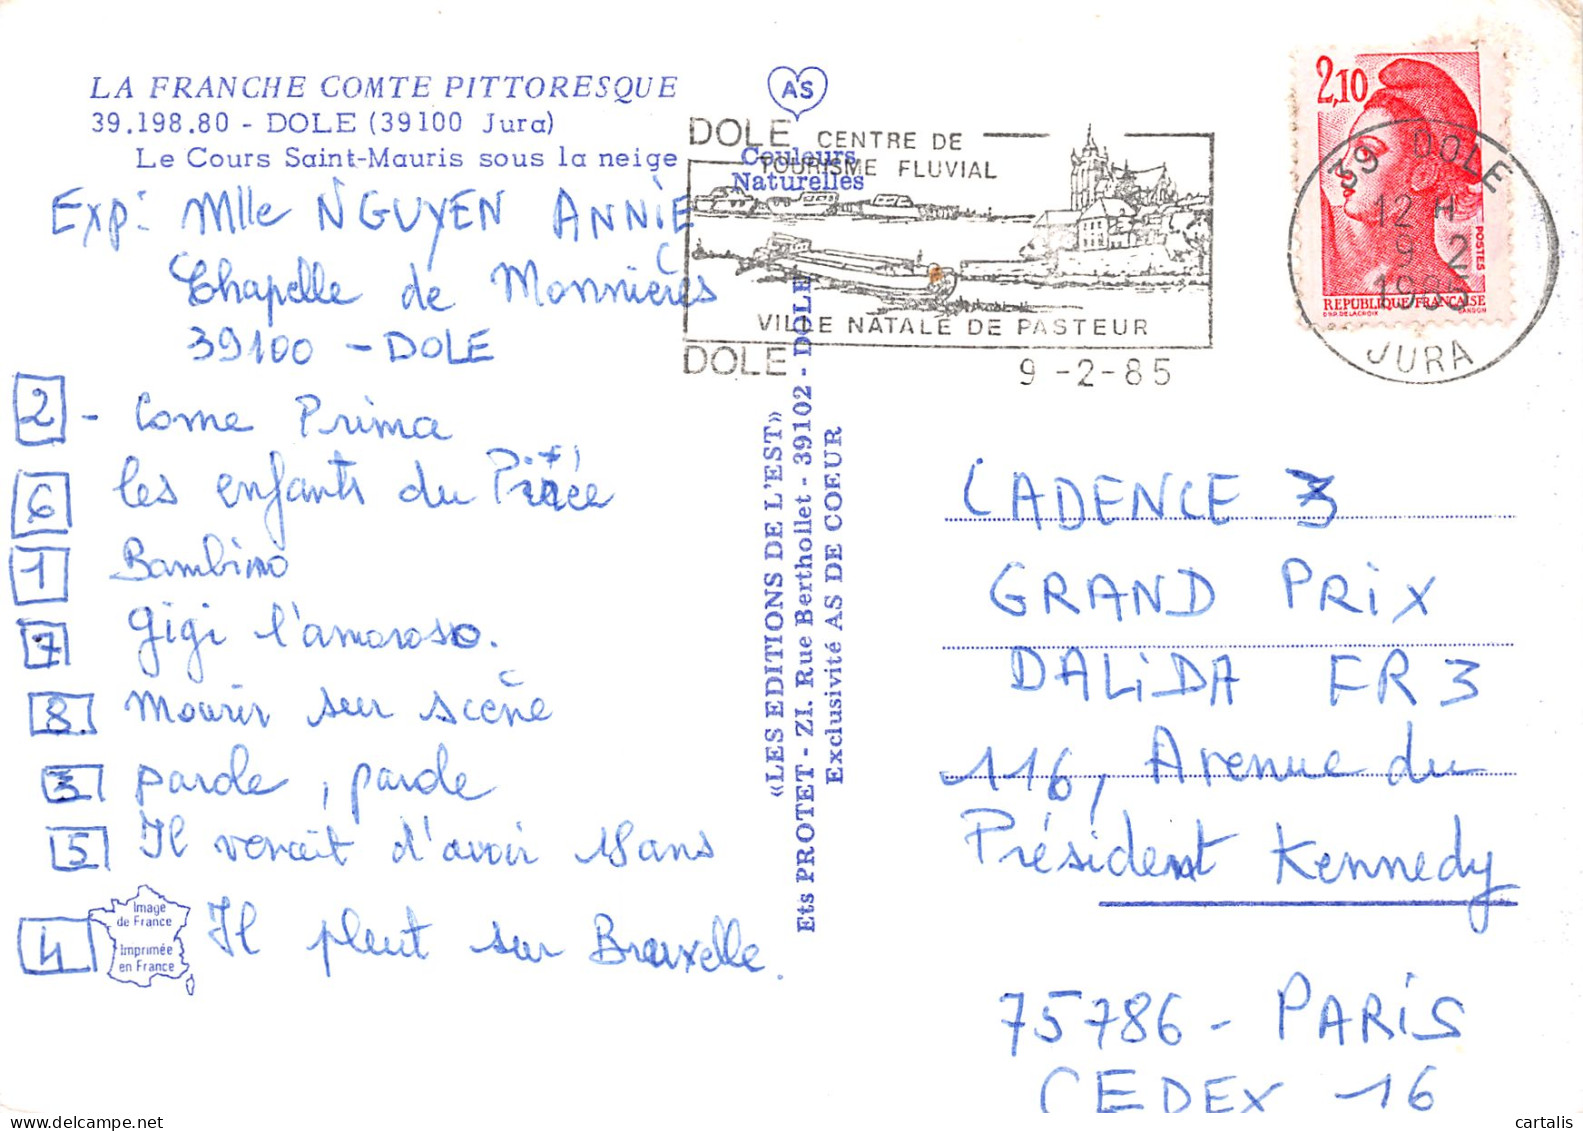 LA FRANCHE COMTE PITTORESQUE
39.198.80 - DOLE (39100 Jura)
Le Cours Saint-Mauris sous la neige
Exp: Mlle NGUYEN ANNIE
Chapelle de Monnières
39100 - DOLE
2 - Come Prima
6 les enfants du Pirée
1 Bambino
7 gigi l'amoroso.
8 Mourir sur scène
3 parole, parole
5 Il venait d'avoir 18 ans
4 Il pleut sur Bruxelle.
Image
de France
Imprimée
en France
AS
Couleurs
Naturelles
«LES EDITIONS DE L'EST»
Ets PROTET - ZI. Rue Berthollet - 39102 - DOLE
Exclusivité AS DE COEUR
DOLE CENTRE DE
TOURISME FLUVIAL
VILLE NATALE DE PASTEUR
DOLE 9-2-85
2,10
POSTES
REPUBLIQUE FRANÇAISE
D'AP. DELACROIX GANDON
39 DOLE
12 H
9 2
1985
JURA
CADENCE 3
GRAND PRIX
DALIDA FR3
116, Avenue du
Président Kennedy
75786 - PARIS
CEDEX 16
www.delcampe.net
cartalis